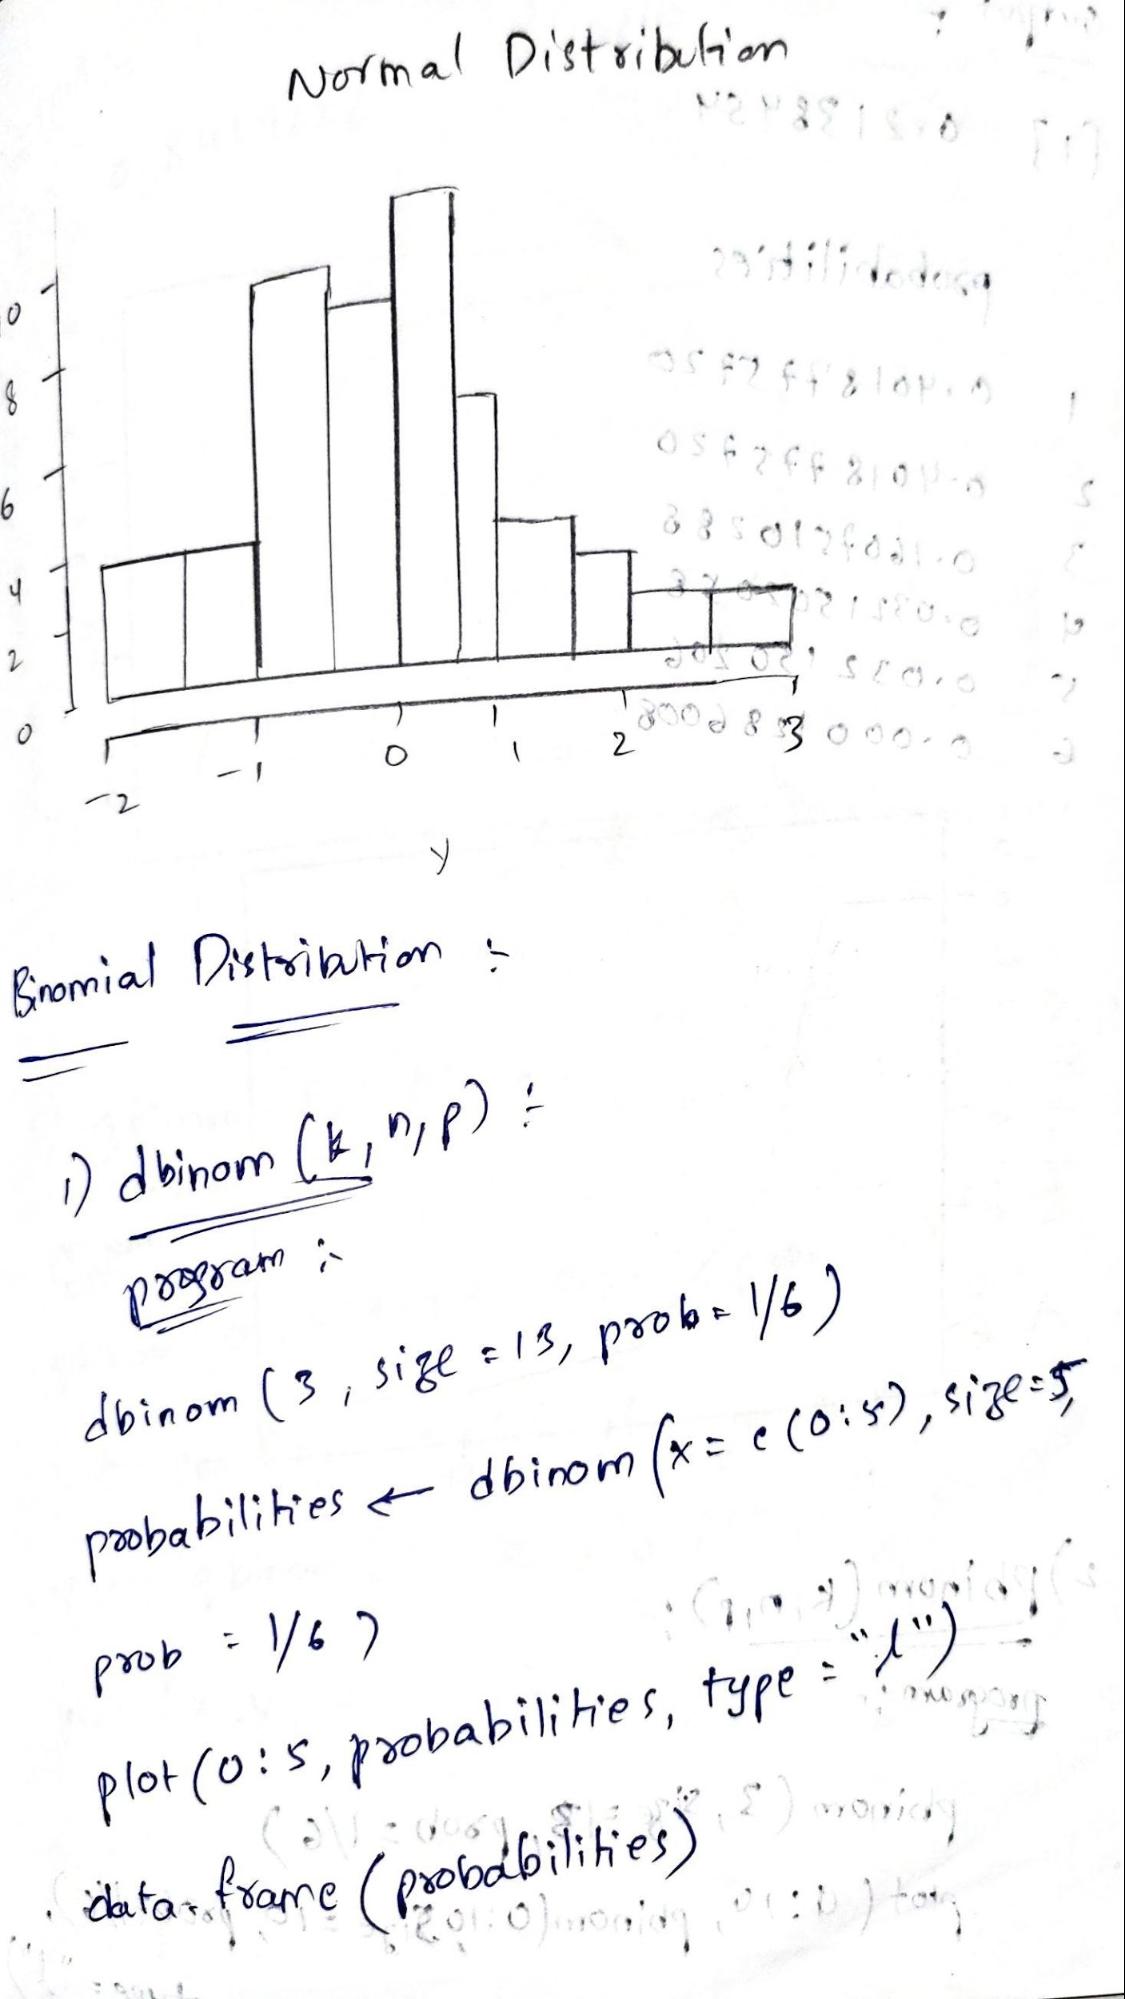 Normal Distribution
0
8
6
4
2
0
-2 -1 0 1 2 3
y
Binomial Distribution :-
1) dbinom (k, n, p) :-
program :-
dbinom (3, size = 13, prob = 1/6)
probabilities ← dbinom (x = c (0:5), size=5,
prob = 1/6)
plot (0:5, probabilities, type = "l")
data.frame (probabilities)